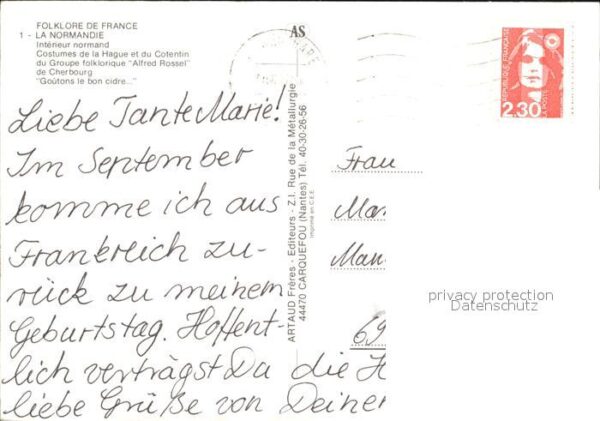 FOLKLORE DE FRANCE
1 - LA NORMANDIE
Intérieur normand
Costumes de la Hague et du Cotentin
du Groupe folklorique "Alfred Rossel"
de Cherbourg
"Goûtons le bon cidre..."
AS
Liebe Tante Marie!
Im September
komme ich aus
Frankreich zu-
rück zu meinem
Geburtstag. Hoffent-
lich verträgst Du die H
liebe Grüße von Deiner
ARTAUD Frères - Editeurs - Z.I. Rue de la Métallurgie
44470 CARQUEFOU (Nantes) Tél. 40-30-26-56
Imprimé en C.E.E.
REPUBLIQUE FRANÇAISE
2,30
LA POSTE
Frau
Mar
Man
69
privacy protection
Datenschutz